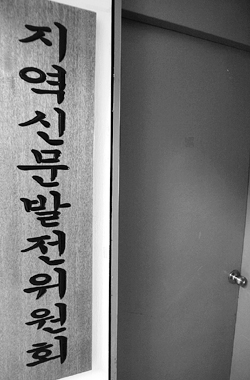 지역신문발전위원회